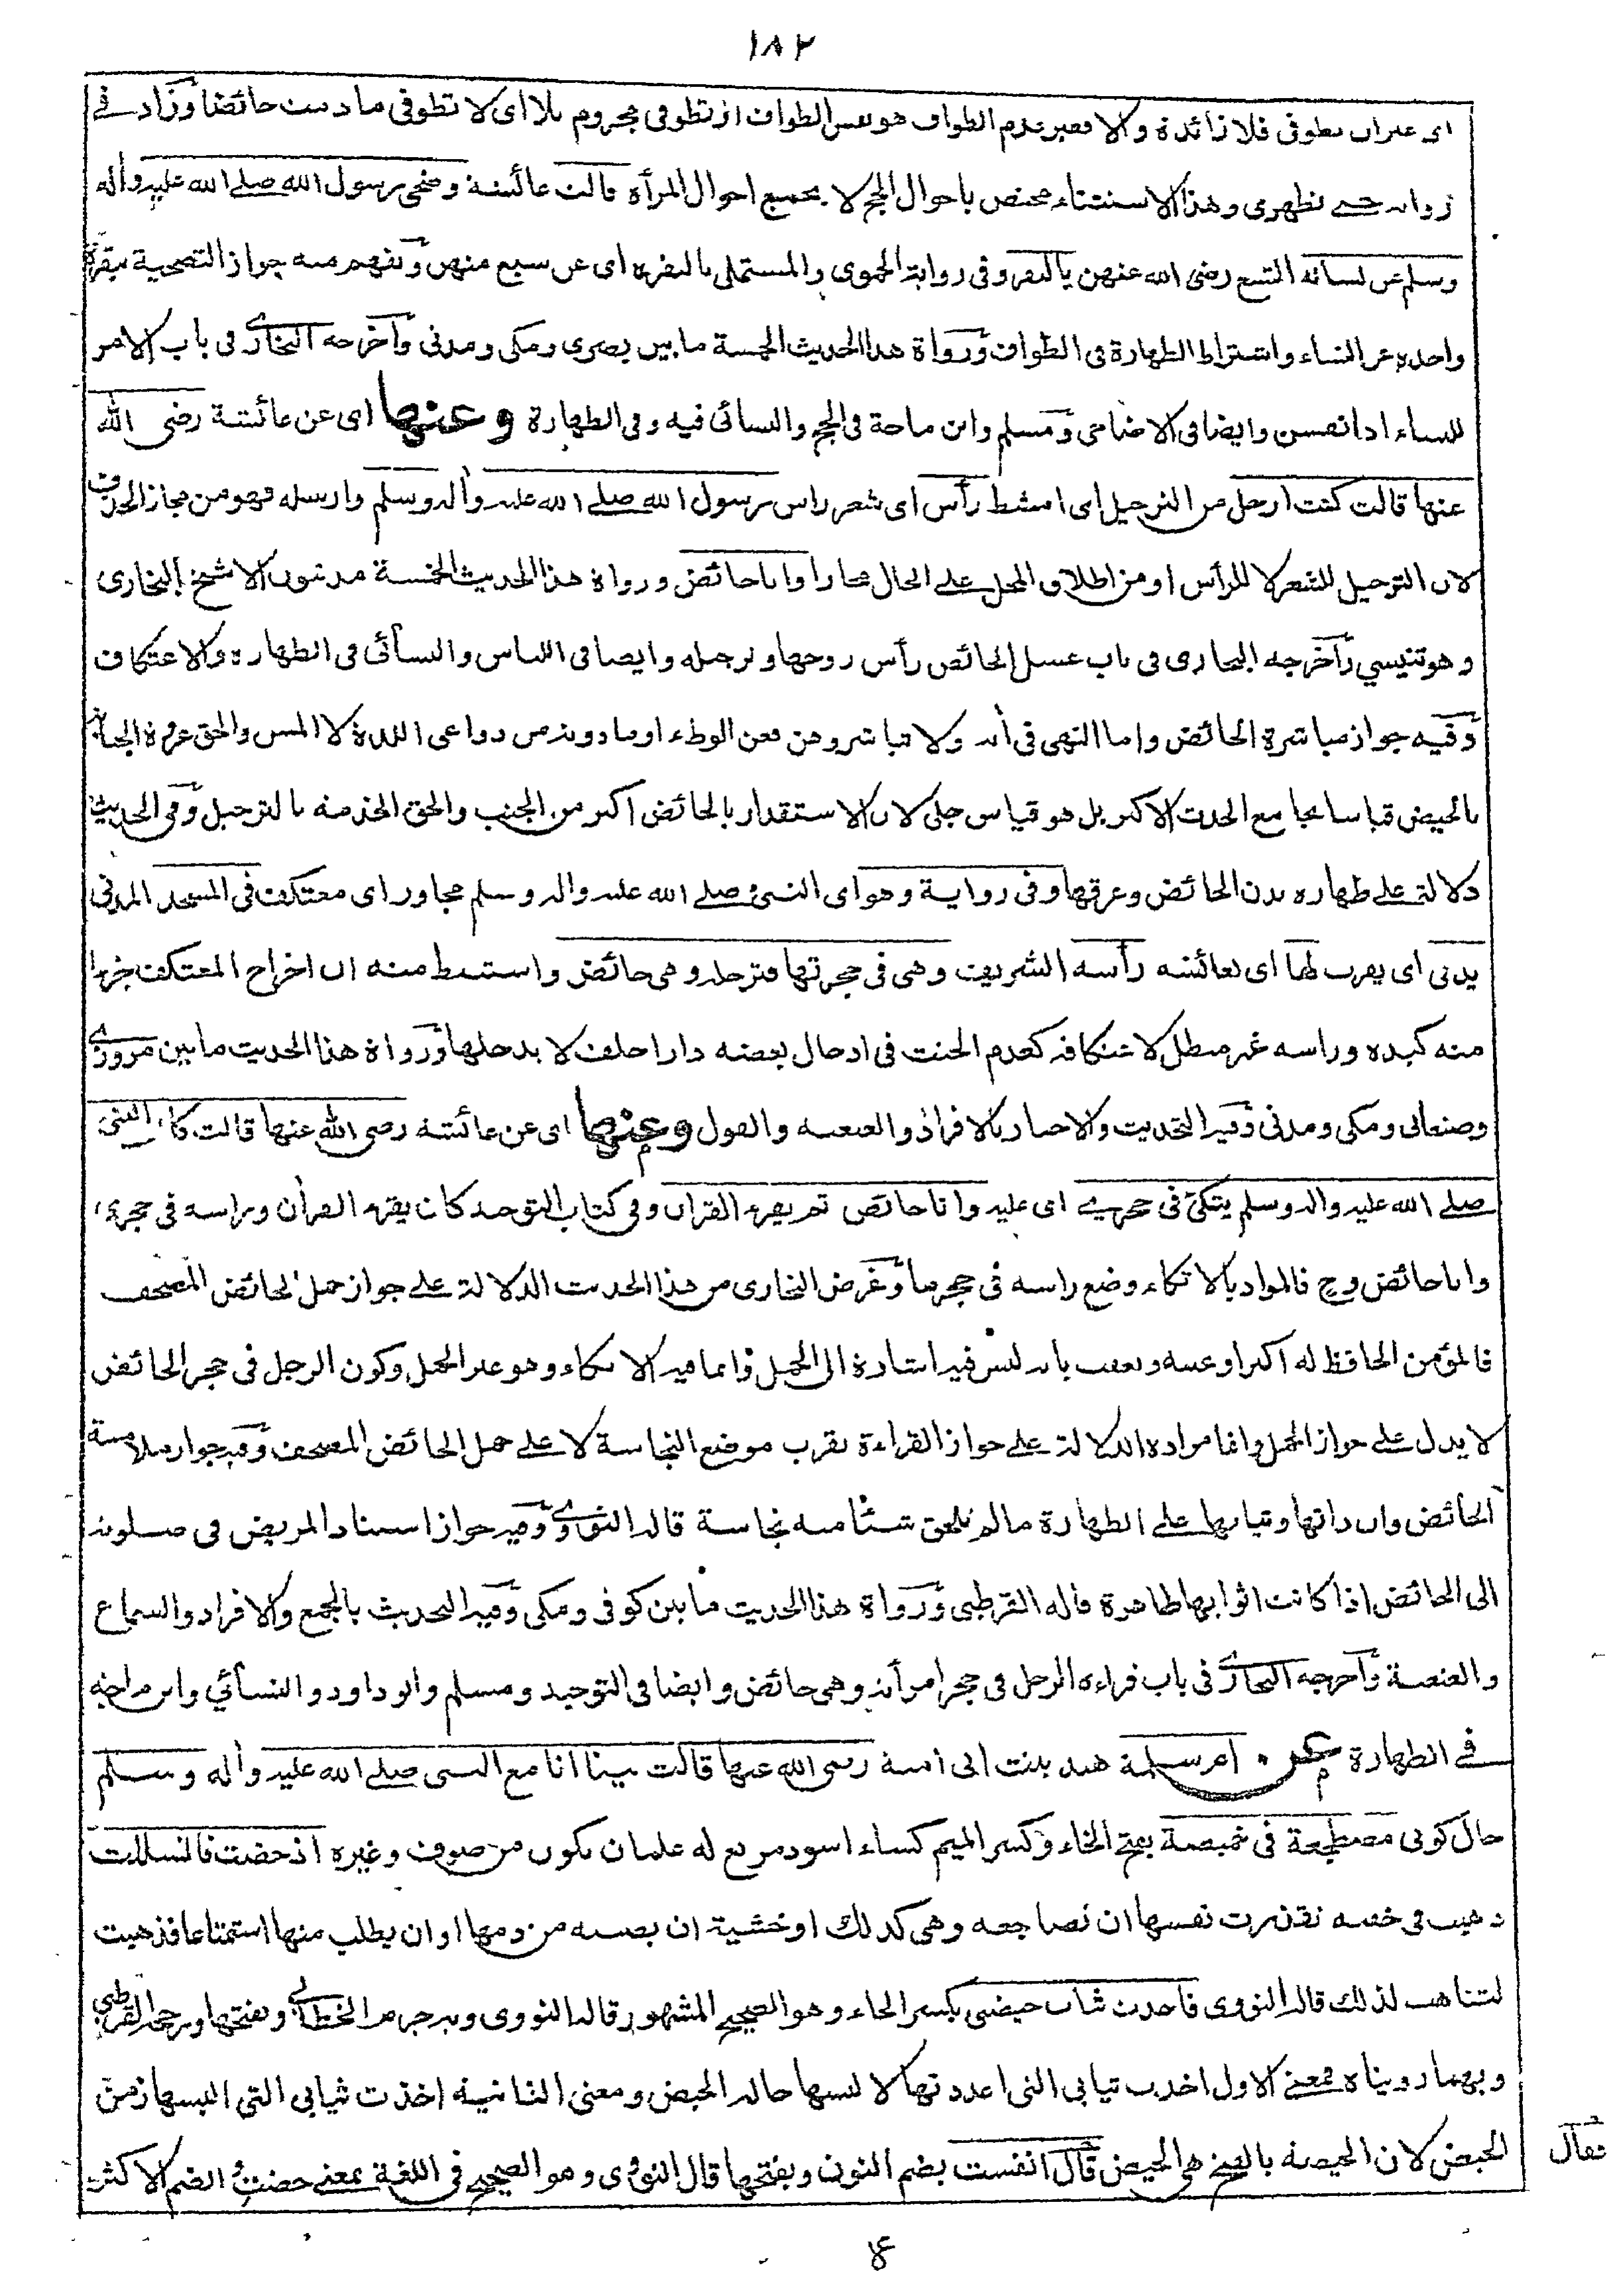 ١٨٢
اى غير ان تطوفى فلا زائدة والا فغير عدم الطواف هو نفس الطواف اذ تطوفى مجزوم بلا اى لا تطوفى ما دمت حائضا وزاد فى
رواية حتى تطهرى وهذا الاستثناء مختص باحوال الحج لا بجميع احوال المرأة قالت عائشة وضحى رسول الله صلى الله عليه واله
وسلم عن نسائه التسع رضى الله عنهن بالبقر وفى رواية الحموى والمستملى بالبقرة اى عن سبع منهن وتفهم منه جواز التضحية ببقرة
واحدة عن النساء واشتراط الطهارة فى الطواف ورواة هذا الحديث الخمسة ما بين بصرى ومكى ومدنى واخرجه البخارى فى باب الامر
للنساء اذا نفسن وايضا فى الاضاحى ومسلم وابن ماجة فى الحج والنسائى فيه وفى الطهارة وعنها اى عن عائشة رضى الله
عنها قالت كنت ارجل من الترجيل اى امشط رأس اى شعر راس رسول الله صلى الله عليه واله وسلم وارسله فهو من مجاز الحذف
لان الترجيل للشعر لا للرأس او من اطلاق المحل على الحال مجازا وانا حائض ورواة هذا الحديث الخمسة مدنيون الا شيخ البخارى
وهو تنيسي واخرجه البخارى فى باب غسل الحائض رأس زوجها وترجيله وايضا فى اللباس والنسائى فى الطهارة والاعتكاف
وفيه جواز مباشرة الحائض واما النهى فى أية ولا تباشروهن فعن الوطء او ما دونه من دواعى اللذة لا المس والحق عروة الجنابة
بالحيض قياسا بجامع الحدث الاكبر بل هو قياس جلى لان الاستقذار بالحائض اكبر من الجنب والحق الخدمة بالترجيل وفى الحديث
دلالة على طهارة بدن الحائض وعرقها وفى رواية وهو اى النبى صلى الله عليه واله وسلم مجاور اى معتكف فى المسجد المدنى
يدنى اى يقرب لها اى لعائشة رأسه الشريف وهى فى حجرتها فترجله وهى حائض واستنبط منه ان اخراج المعتكف جزءا
منه كيده وراسه غير مبطل لاعتكافه كعدم الحنث فى ادخال بعضه دارا حلف لا يدخلها ورواة هذا الحديث ما بين مروزى
وصنعانى ومكى ومدنى وفيه التحديث والاخبار بالافراد والعنعنة والقول وعنها اى عن عائشة رضى الله عنها قالت كان النبى
صلى الله عليه واله وسلم يتكئ فى حجرى اى عليه وانا حائض ثم يقرء القران وفى كتاب التوحيد كان يقرء القرأن وراسه فى حجرى
وانا حائض وح فالمراد بالاتكاء وضع راسه فى حجرها وغرض البخارى من هذا الحديث الدلالة على جواز حمل الحائض المصحف
فالمؤمن الحافظ له اكبر اوعيته وتعقب بانه ليس فيه اشارة الى الحمل وانما فيه الاتكاء وهو غير الحمل وكون الرجل فى حجر الحائض
لا يدل على جواز الحمل وانما مراده الدلالة على جواز القراءة بقرب موضع النجاسة لا على حمل الحائض المصحف وفيه جواز ملامسة
الحائض وان ذاتها وثيابها على الطهارة ما لم يلحق شيئا منه نجاسة قاله النواوى وفيه جواز استناد المريض فى صلوته
الى الحائض اذا كانت اثوابها طاهرة قاله القرطبى ورواة هذا الحديث ما بين كوفى ومكى وفيه التحديث بالجمع والافراد والسماع
والعنعنة واخرجه البخارى فى باب قراءة الرجل فى حجر امرأته وهى حائض وايضا فى التوحيد ومسلم وابو داود والنسأئي وابن ماجه
فى الطهارة عن ام سلمة هند بنت ابى امية رضى الله عنها قالت بينا انا مع النبى صلى الله عليه واله وسلم
حال كونى مضطجعة فى خميصة بفتح الخاء وكسر الميم كساء اسود مربع له علمان يكون من صوف وغيره اذ حضت فانسللت
ذهبت فى خفية تقذرت نفسها ان تضاجعه وهى كذلك او خشية ان يصيبه من دمها او ان يطلب منها استمتاعا فذهبت
لتتاهب لذلك قاله النووى فاخذت ثياب حيضتى بكسر الحاء وهو الصحيح المشهور قاله النووى وبه جزم الخطابى وبفتحها ورجحه القرطبى
وبهما رويناه فمعنى الاول اخذت ثيابى التى اعددتها لالبسها حالة الحيض ومعنى الثانية اخذت ثيابى التى البسها زمن
الحيض لان الحيضة بالفتح هى الحيض قال انفست بضم النون وبفتحها قال النووى وهو الصحيح فى اللغة بمعنى حضت والضم الاكثر
فقال